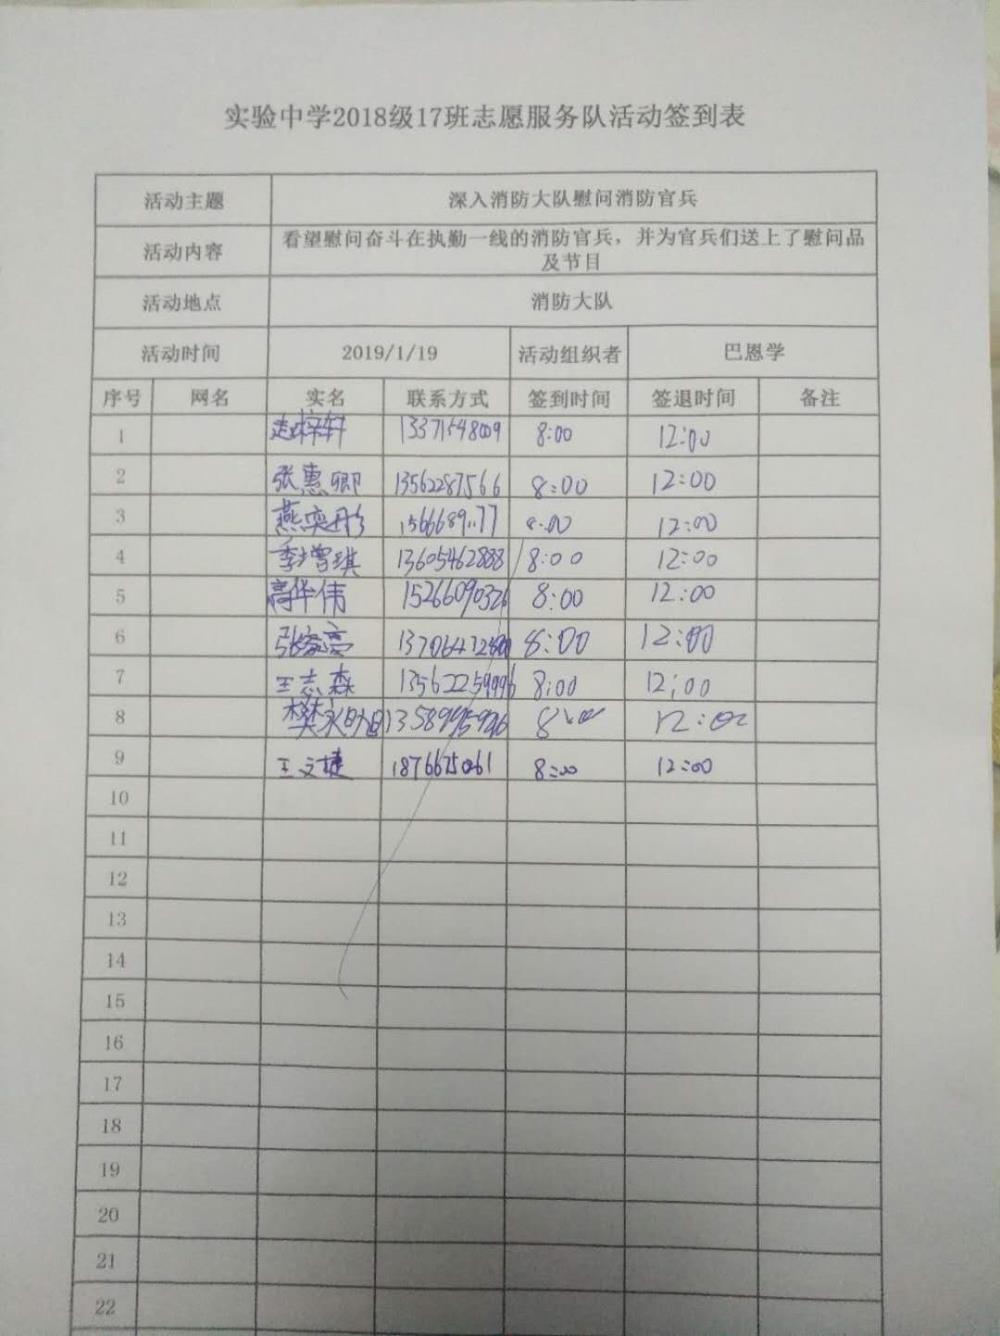 实验中学2018级17班志愿服务队活动签到表
活动主题 深入消防大队慰问消防官兵
活动内容 看望慰问奋斗在执勤一线的消防官兵，并为官兵们送上了慰问品
及节目
活动地点 消防大队
活动时间 2019/1/19 活动组织者 巴恩学
序号 网名 实名 联系方式 签到时间 签退时间 备注
1 赵梓轩 8:00 12:00
2 张惠卿 13562287566 8:00 12:00
3 燕奕彤 8:00 12:00
4 季增琪 13605462888 8:00 12:00
5 高华伟 15266090326 8:00 12:00
6 8:00 12:00
7 王志森 13562259996 8:00 12:00
8 8:00 12:00
9 王文捷 18766675061 8:00 12:00
10
11
12
13
14
15
16
17
18
19
20
21
22